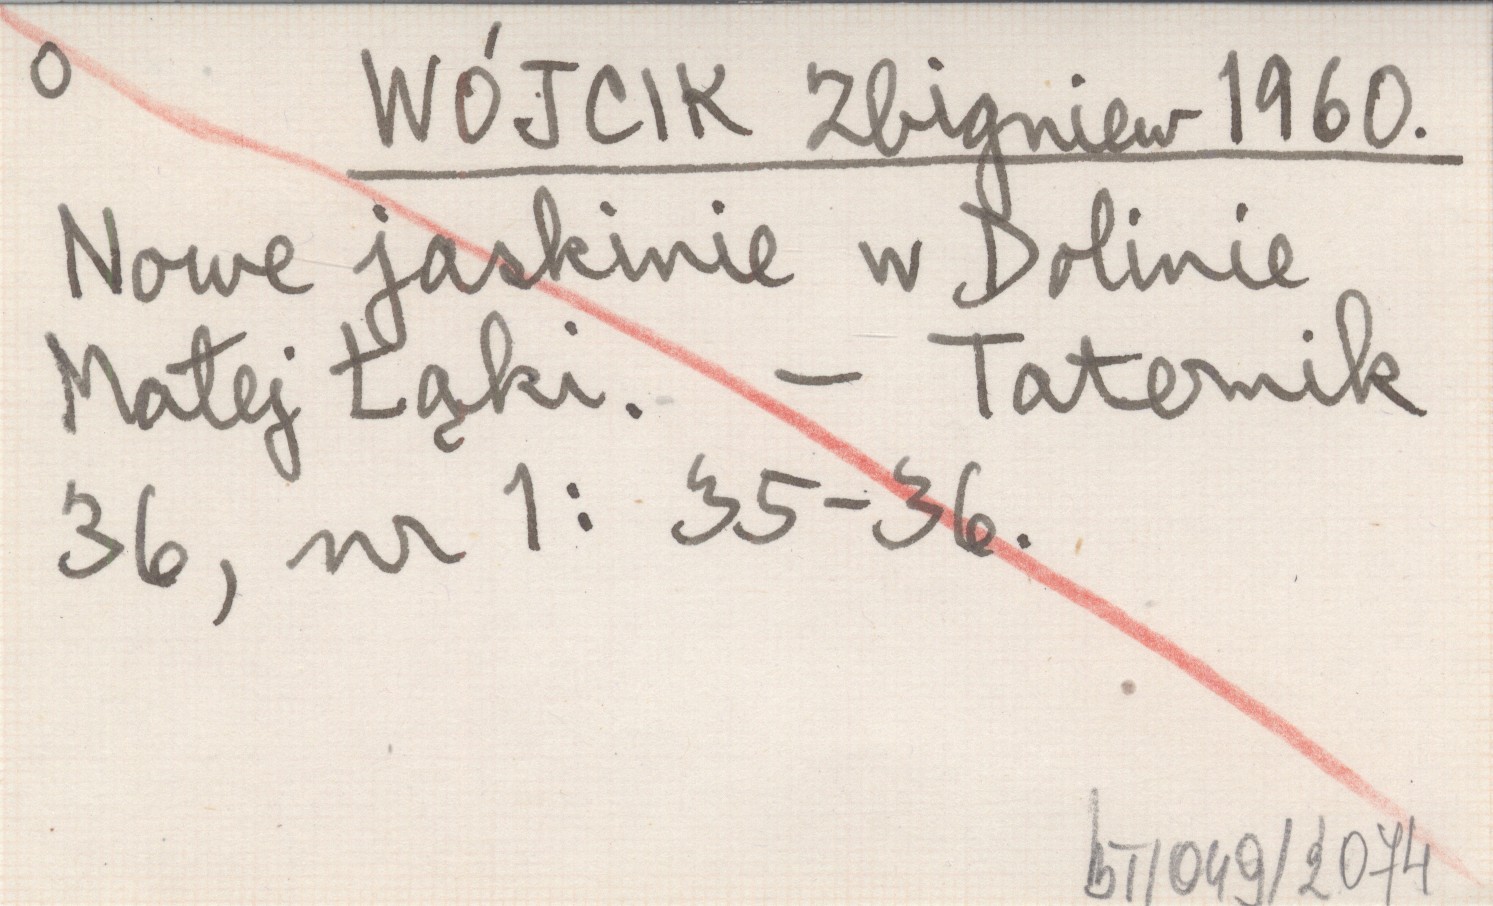 O WÓJCIK Zbigniew 1960.
Nowe jaskinie w Dolinie
Małej Łąki. — Taternik
36, nr 1: 35-36.
bT/049/2074